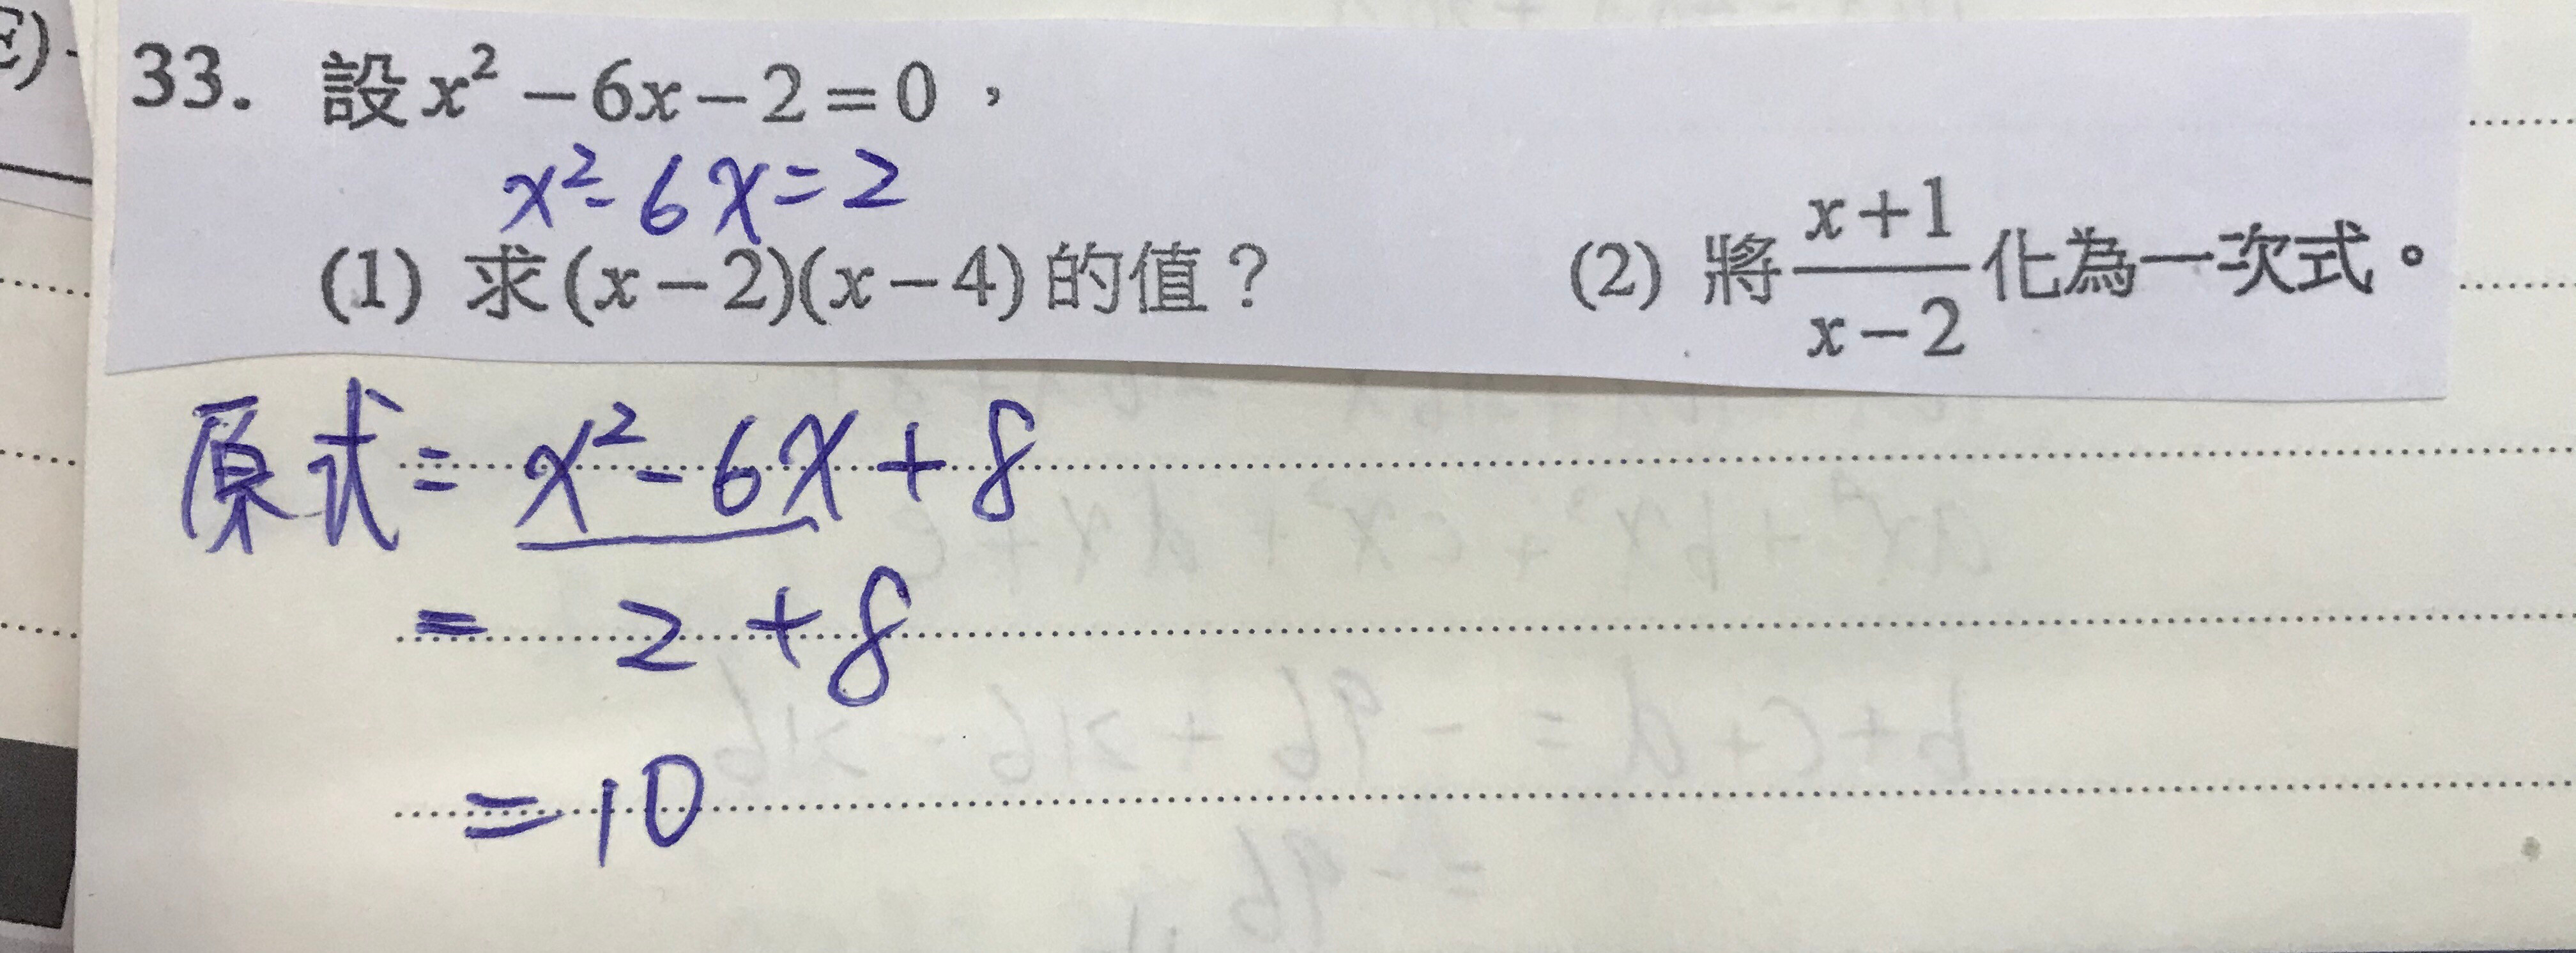 33. 設 x² − 6x − 2 = 0 ，
x² - 6x = 2
(1) 求 (x − 2)(x − 4) 的值？
(2) 將 (x+1)/(x−2) 化為一次式。
原式 = x² - 6x + 8
= 2 + 8
= 10